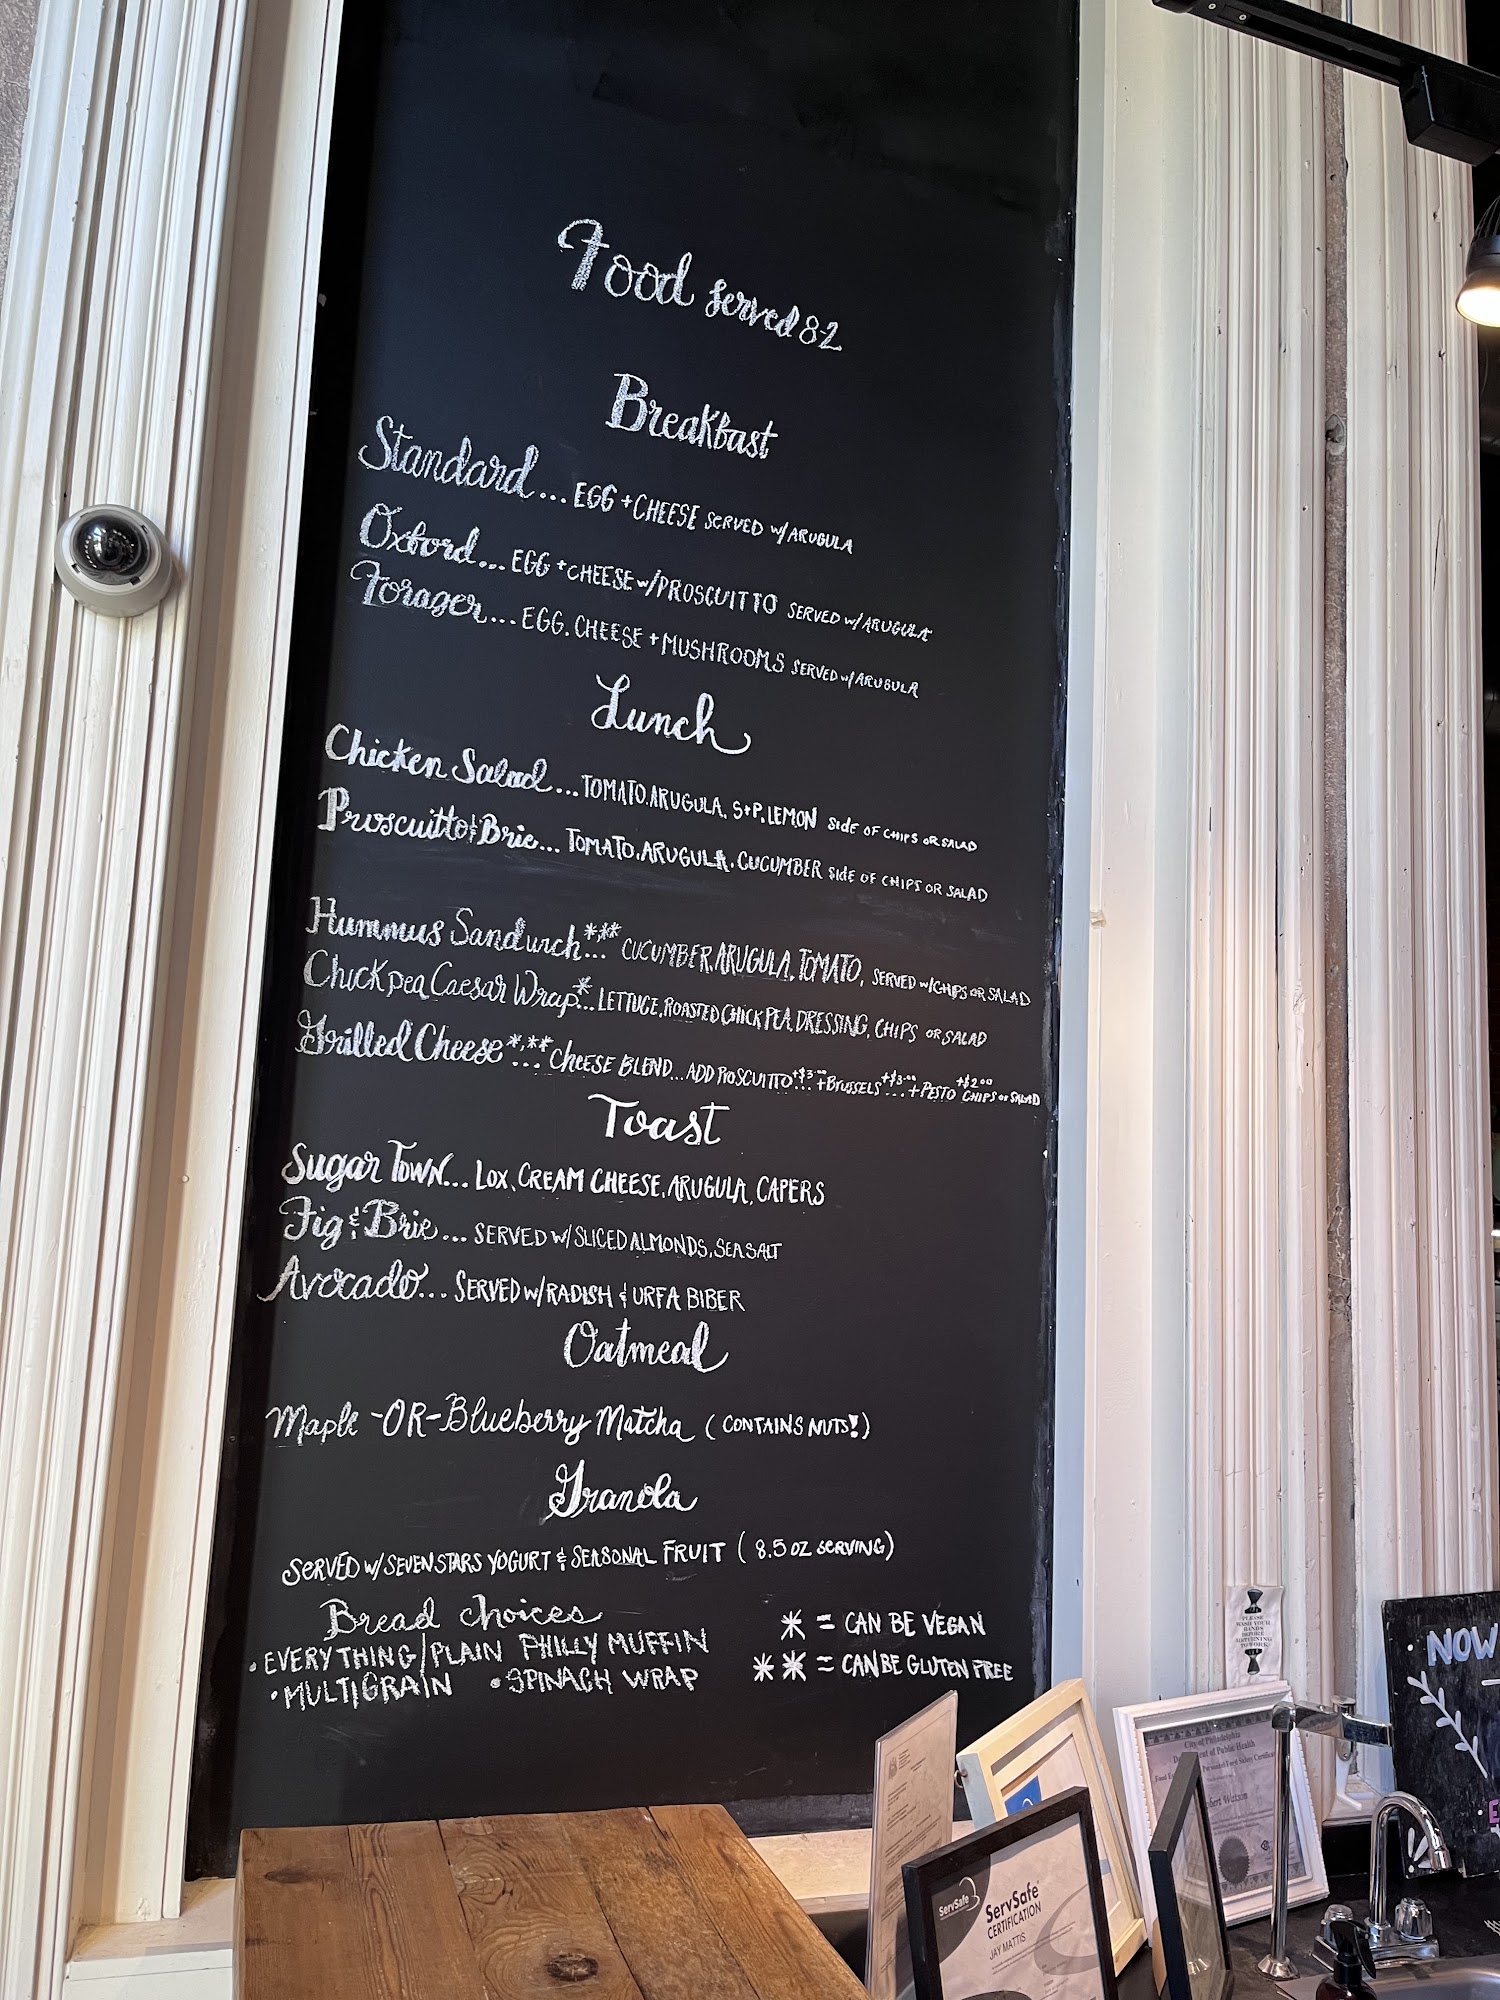 Food served 8-2
Breakfast
Standard... EGG + CHEESE SERVED W/ ARUGULA
Oxford... EGG + CHEESE W/ PROSCUITTO SERVED W/ ARUGULA
Forager... EGG, CHEESE + MUSHROOMS SERVED W/ ARUGULA
Lunch
Chicken Salad... TOMATO, ARUGULA, S+P, LEMON SIDE OF CHIPS OR SALAD
Proscuitto & Brie... TOMATO, ARUGULA, CUCUMBER SIDE OF CHIPS OR SALAD
Hummus Sandwich*,**... CUCUMBER, ARUGULA, TOMATO, SERVED W/ CHIPS OR SALAD
Chickpea Caesar Wrap*... LETTUCE, ROASTED CHICKPEA, DRESSING, CHIPS OR SALAD
Grilled Cheese*,**... CHEESE BLEND... ADD PROSCUITTO +$3.00... + BRUSSELS +$3.00... + PESTO +$2.00 CHIPS OR SALAD
Toast
Sugar Town... LOX, CREAM CHEESE, ARUGULA, CAPERS
Fig & Brie... SERVED W/ SLICED ALMONDS, SEA SALT
Avocado... SERVED W/ RADISH & URFA BIBER
Oatmeal
Maple -OR- Blueberry Matcha (CONTAINS NUTS!)
Granola
SERVED W/ SEVEN STARS YOGURT & SEASONAL FRUIT (8.5 OZ SERVING)
Bread choices
• EVERYTHING/PLAIN PHILLY MUFFIN
• MULTIGRAIN • SPINACH WRAP
* = CAN BE VEGAN
** = CAN BE GLUTEN FREE
PLEASE
WASH YOUR
HANDS
BEFORE
RETURNING
TO WORK
NOW
City of Philadelphia
Department of Public Health
ServSafe
ServSafe
CERTIFICATION
JAY MATTIS